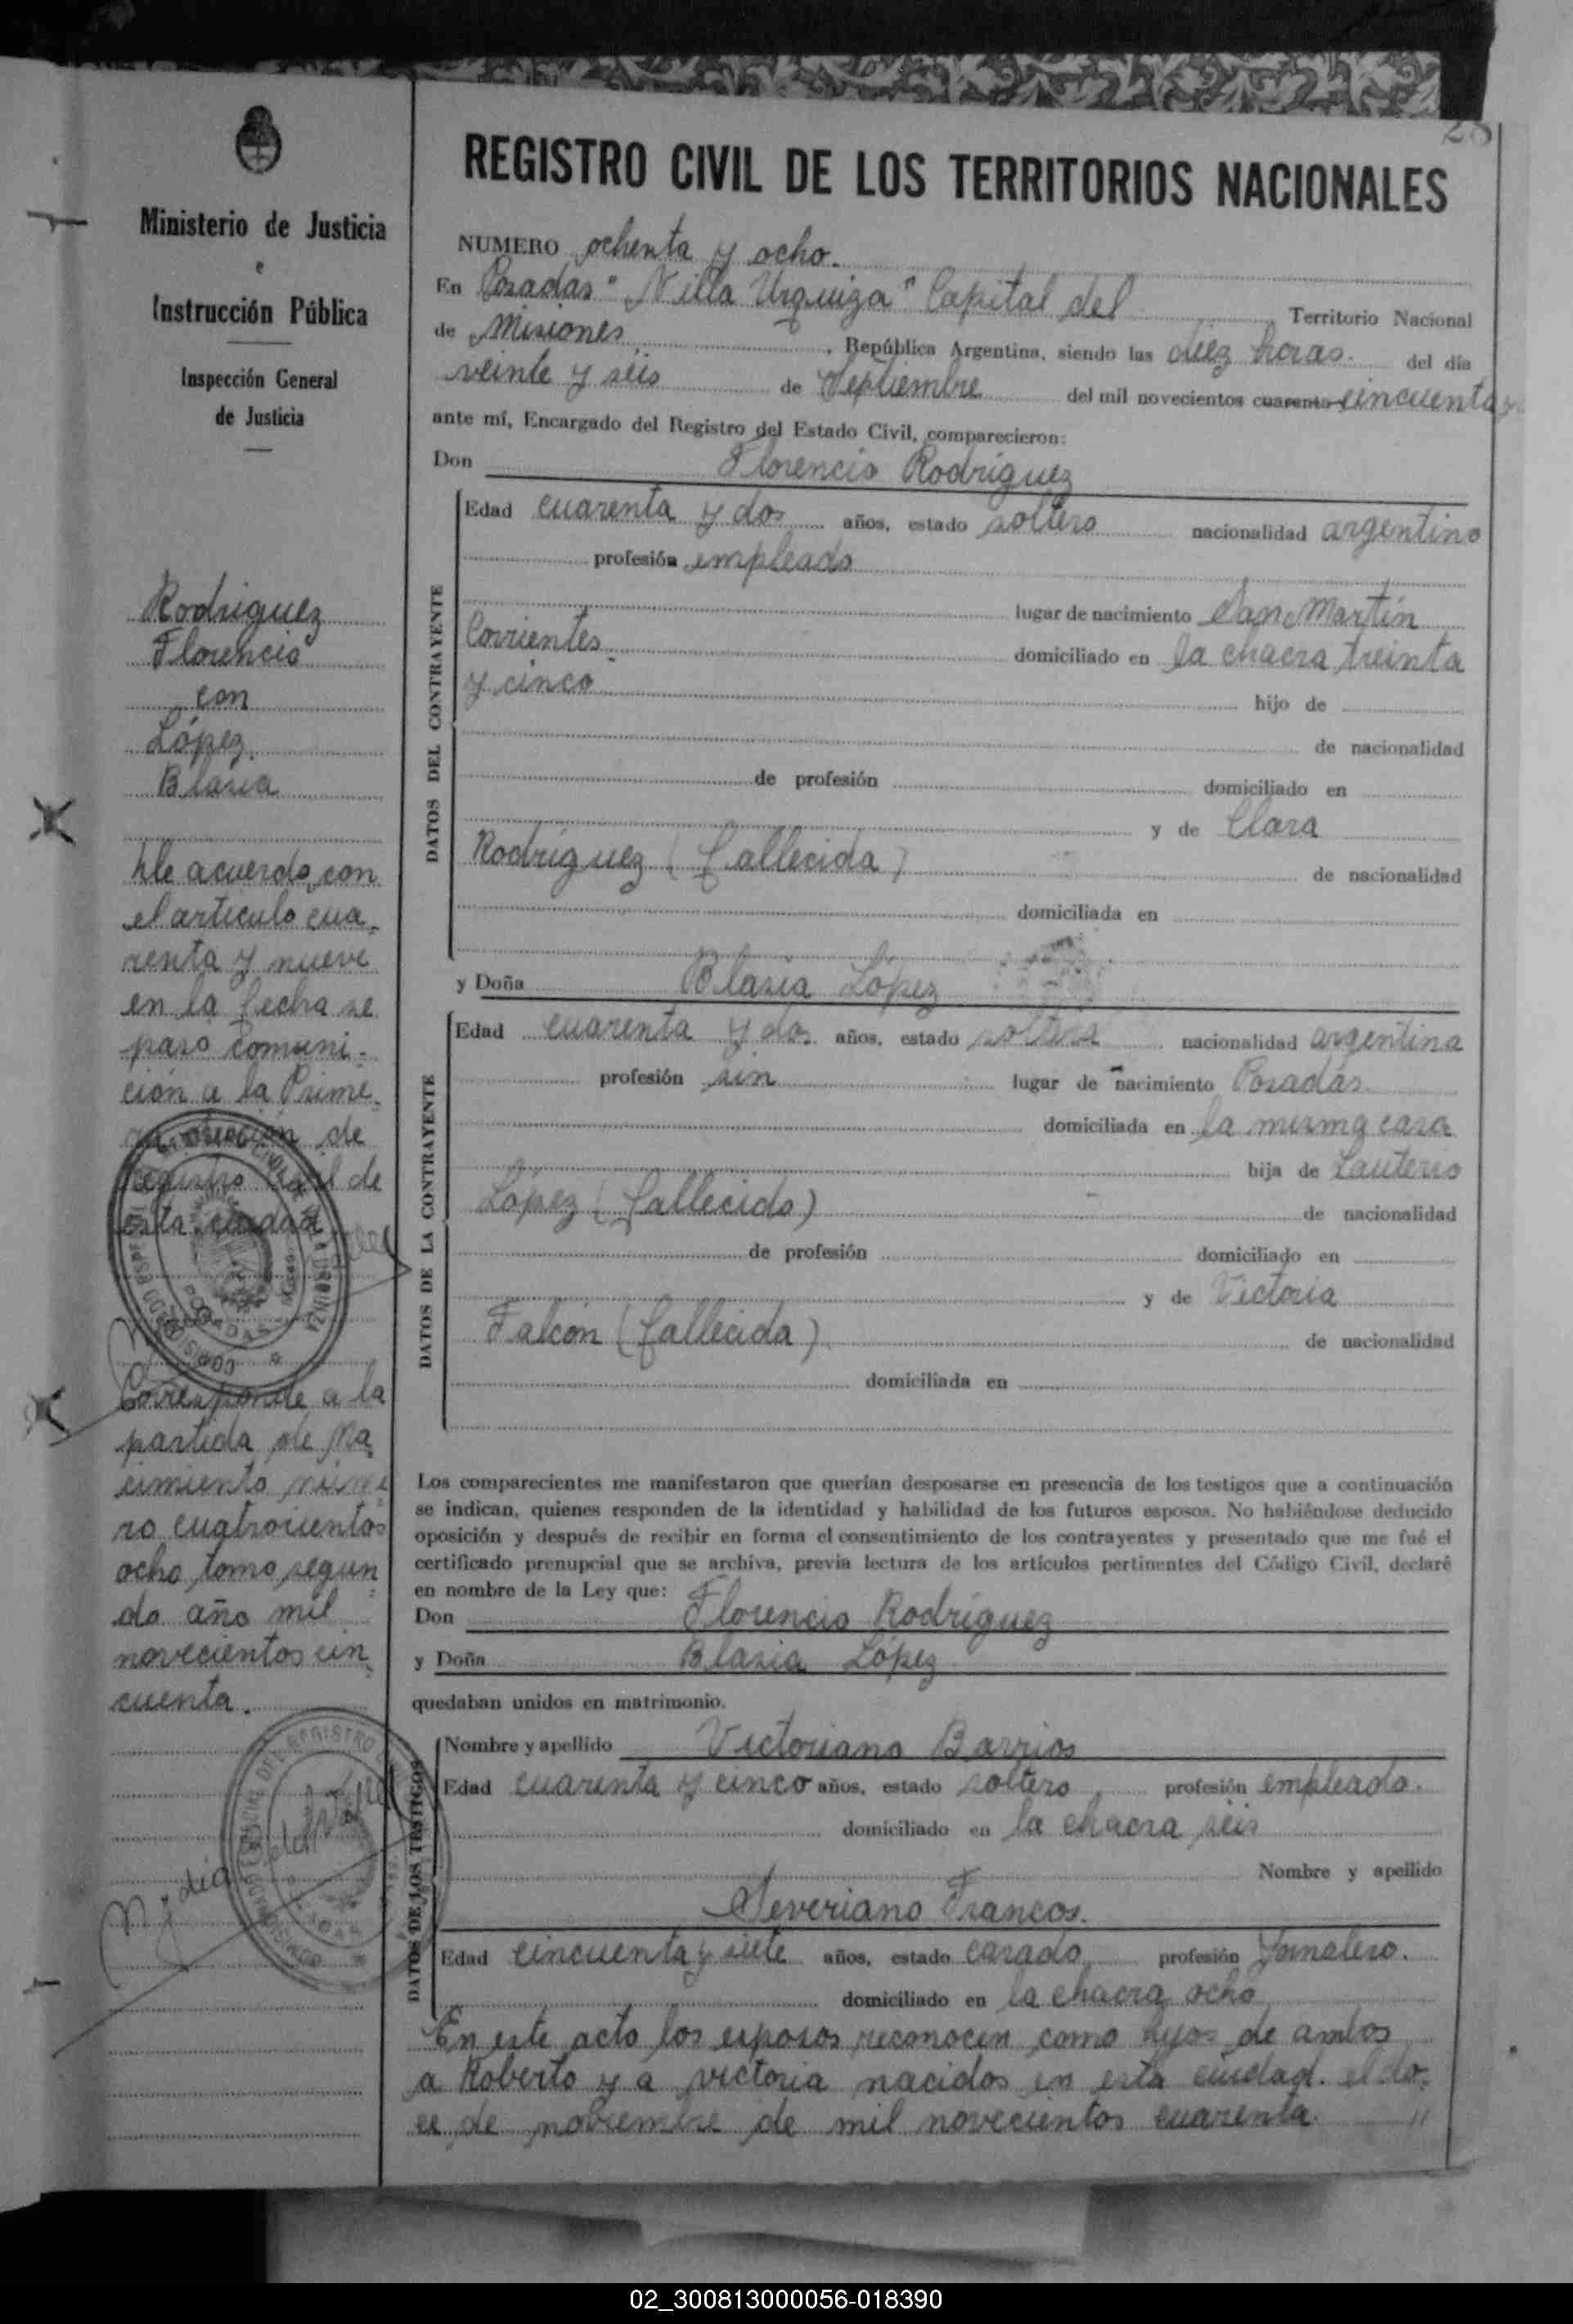 28
Ministerio de Justicia
e
Instrucción Pública
Inspección General
de Justicia
Rodriguez
Florencio
con
López
Blasia
De acuerdo con
el artículo cua-
renta y nueve
en la fecha se
paso comuni-
ción a la Prime-
ra Sección de
Registro Civil de
esta ciudad
Corresponde a la
partida de Na-
cimiento núme-
ro cuatrocientos
ocho tomo segun-
do año mil
novecientos cin-
cuenta.
REGISTRO CIVIL DE LOS TERRITORIOS NACIONALES
NUMERO ochenta y ocho.
En Posadas "Villa Urquiza" Capital del Territorio Nacional
de Misiones, República Argentina, siendo las diez horas. del día
veinte y seis de Septiembre del mil novecientos cuarenta cincuenta
ante mí, Encargado del Registro del Estado Civil, comparecieron:
Don Florencio Rodríguez
DATOS DEL CONTRAYENTE
Edad cuarenta y dos años, estado soltero nacionalidad argentino
profesión empleado
lugar de nacimiento San Martín
Corrientes domiciliado en la chacra treinta
y cinco hijo de
de nacionalidad
de profesión domiciliado en
y de Clara
Rodríguez (fallecida) de nacionalidad
domiciliada en
y Doña Blasia López
DATOS DE LA CONTRAYENTE
Edad cuarenta y dos años, estado soltera nacionalidad argentina
profesión sin lugar de nacimiento Posadas
domiciliada en la misma casa
hija de Lauterio
López (fallecido) de nacionalidad
de profesión domiciliado en
y de Victoria
Falcón (fallecida) de nacionalidad
domiciliada en
Los comparecientes me manifestaron que querían desposarse en presencia de los testigos que a continuación
se indican, quienes responden de la identidad y habilidad de los futuros esposos. No habiéndose deducido
oposición y después de recibir en forma el consentimiento de los contrayentes y presentado que me fué el
certificado prenupcial que se archiva, previa lectura de los artículos pertinentes del Código Civil, declaré
en nombre de la Ley que:
Don Florencio Rodríguez
y Doña Blasia López
quedaban unidos en matrimonio.
DATOS DE LOS TESTIGOS
Nombre y apellido Victoriano Barrios
Edad cuarenta y cinco años, estado soltero profesión empleado.
domiciliado en la chacra seis
Nombre y apellido
Severiano Francos.
Edad cincuenta y siete años, estado casado profesión Jornalero.
domiciliado en la chacra ocho
En este acto los esposos reconocen como hijos de ambos
a Roberto y a victoria nacidos en esta ciudad. el do-
ce de noviembre de mil novecientos cuarenta. //
02_300813000056-018390